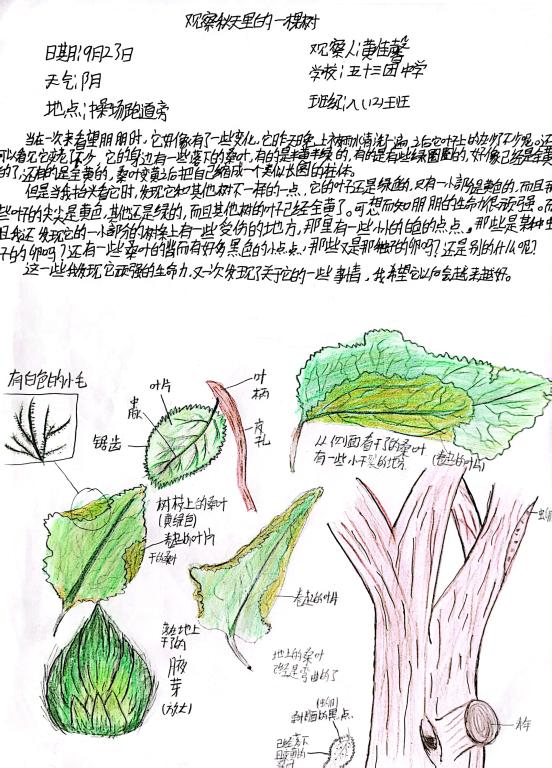 观察秋天里的一棵树
日期:9月23日
观察人:黄佳馨
天气:阴
学校:五十三团中学
地点:操场跑道旁
班级:八(12)王班
当在一次来看望朋朋时,它好像有了一些变化,它昨天晚上被雨水清洗一遍之后它叶子上的灰少了不少呢。还
可以看见它变老了不少,它的身边有一些落下的桑叶,有的是半黄半绿的,有的是有些绿圈圈的,好像已经是全黄
的了,还有的是全黄的,桑叶变黄之后把自己缩成一个类似长圆的柱体。
但是当我抬头看它时,发现它和其他树不一样的一点,它的叶子还是绿色的,只有一小部分是黄色的,而且有
些叶子的尖尖是黄色,其他还是绿的,而且其他树的叶子已经全黄了。可想而知朋朋的生命力是顽强。而
且我还发现它的一小部分树条上有一些受伤的地方,那里有一些小小的白色的点点,那些是某种虫
子的卵吗?还有一些桑叶的背面有好多黑色的小点点,那些又是那种子的卵吗?还是别的什么呢?
这一些我发现它顽强的生命力,又一次发现了关于它的一些事情,我希望它以后会越来越好。
有白色的小毛
叶片
叶柄
叶脉
锯齿
皮孔
从侧面看干了的桑叶
有一些小干裂的地方
(卷起的叶片)
树枝上的桑叶
(黄绿色)
卷起的叶片
干的桑叶
卷起的叶片
落在地上
干了的
腋芽
(放大)
地上的桑叶
已经是弯曲的了
黑点